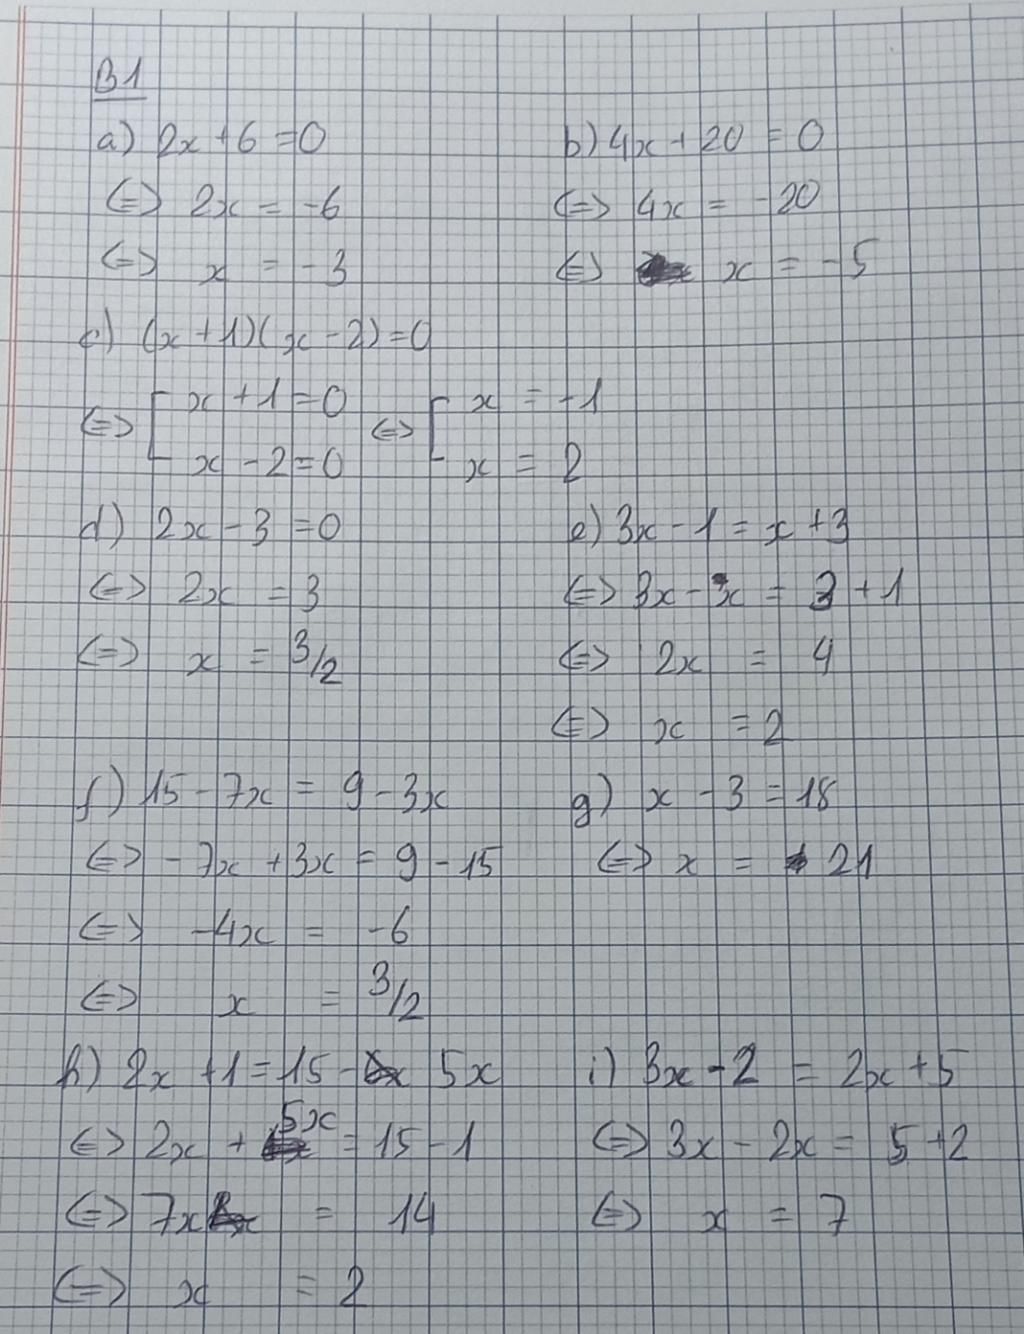 B1
a) 2x + 6 = 0
<=> 2x = -6
<=> x = -3
b) 4x + 20 = 0
<=> 4x = -20
<=> x = -5
c) (x + 1)(x - 2) = 0
<=> [ x + 1 = 0 <=> [ x = -1
x - 2 = 0 x = 2
d) 2x - 3 = 0
<=> 2x = 3
<=> x = 3/2
e) 3x - 1 = x + 3
<=> 3x - x = 3 + 1
<=> 2x = 4
<=> x = 2
f) 15 - 7x = 9 - 3x
<=> -7x + 3x = 9 - 15
<=> -4x = -6
<=> x = 3/2
g) x - 3 = 18
<=> x = 21
h) 2x + 1 = 15 - 5x
<=> 2x + 5x = 15 - 1
<=> 7x = 14
<=> x = 2
i) 3x - 2 = 2x + 5
<=> 3x - 2x = 5 + 2
<=> x = 7